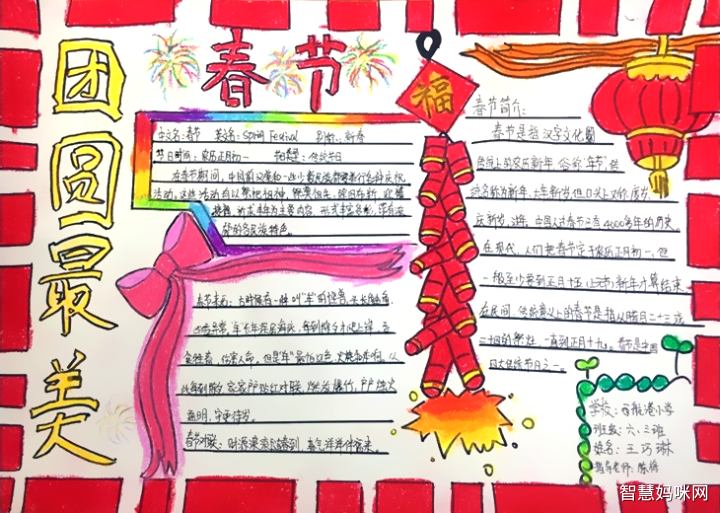 团圆最美
春节
福
中文名：春节 英文名：Spring Festival 别称：新春
节日时间：农历正月初一 节日类型：传统节日
在春节期间，中国的汉族和一些少数民族都要举行各种庆祝
活动。这些活动均以祭祀祖神、祭奠祖先、除旧布新、迎禧
接福、祈求丰年为主要内容，形式丰富多彩，带有浓
郁的各民族特色。
春节来历：古时候有一种叫"年"的怪兽，头长触角，
凶猛异常，年长年深居海底，每到除夕才爬上岸，吞
食牲畜，伤害人命，但是"年"最怕红色、火光和炸响。从
此每到除夕，家家户户贴红对联、燃放爆竹，户户烛火
通明，守更待岁。
春节对联：财源滚滚
春节简介：
春节是指汉字文化圈
传统上的农历新年，俗称"年节"，传
统名称为新年、大年、新岁，但口头上又称度岁、
庆新岁、过年。中国人过春节已有4000多年的历史。
在现代，人们把春节定于农历正月初一，但
一般至少要到正月十五（上元节）新年才算结束
在民间，传统意义上的春节是指从腊月二十三或
二十四的祭灶，一直到正月十九。春节是中国
四大传统节日之一。
学校：
班级：六、三班
姓名：王巧琳
指导老师：陈
智慧妈咪网